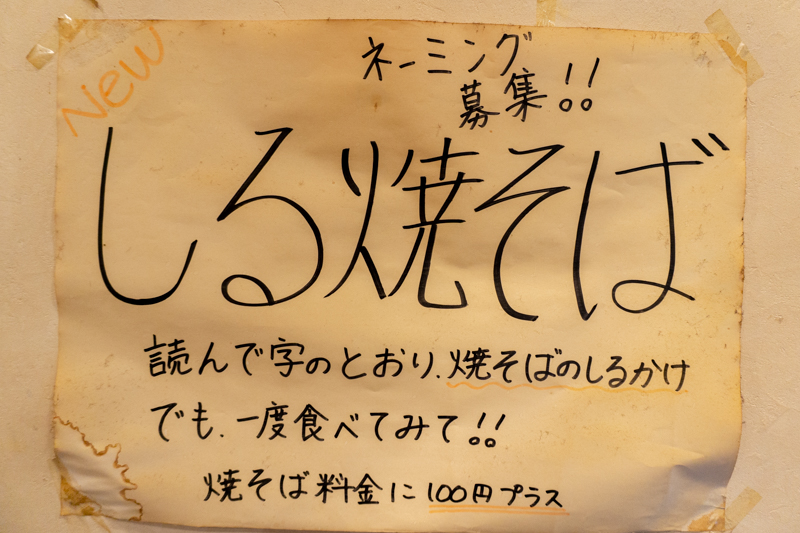 New
ネーミング
募集!!
しる焼そば
読んで字のとおり、焼そばのしるかけ
でも、一度食べてみて!!
焼そば料金に100円プラス